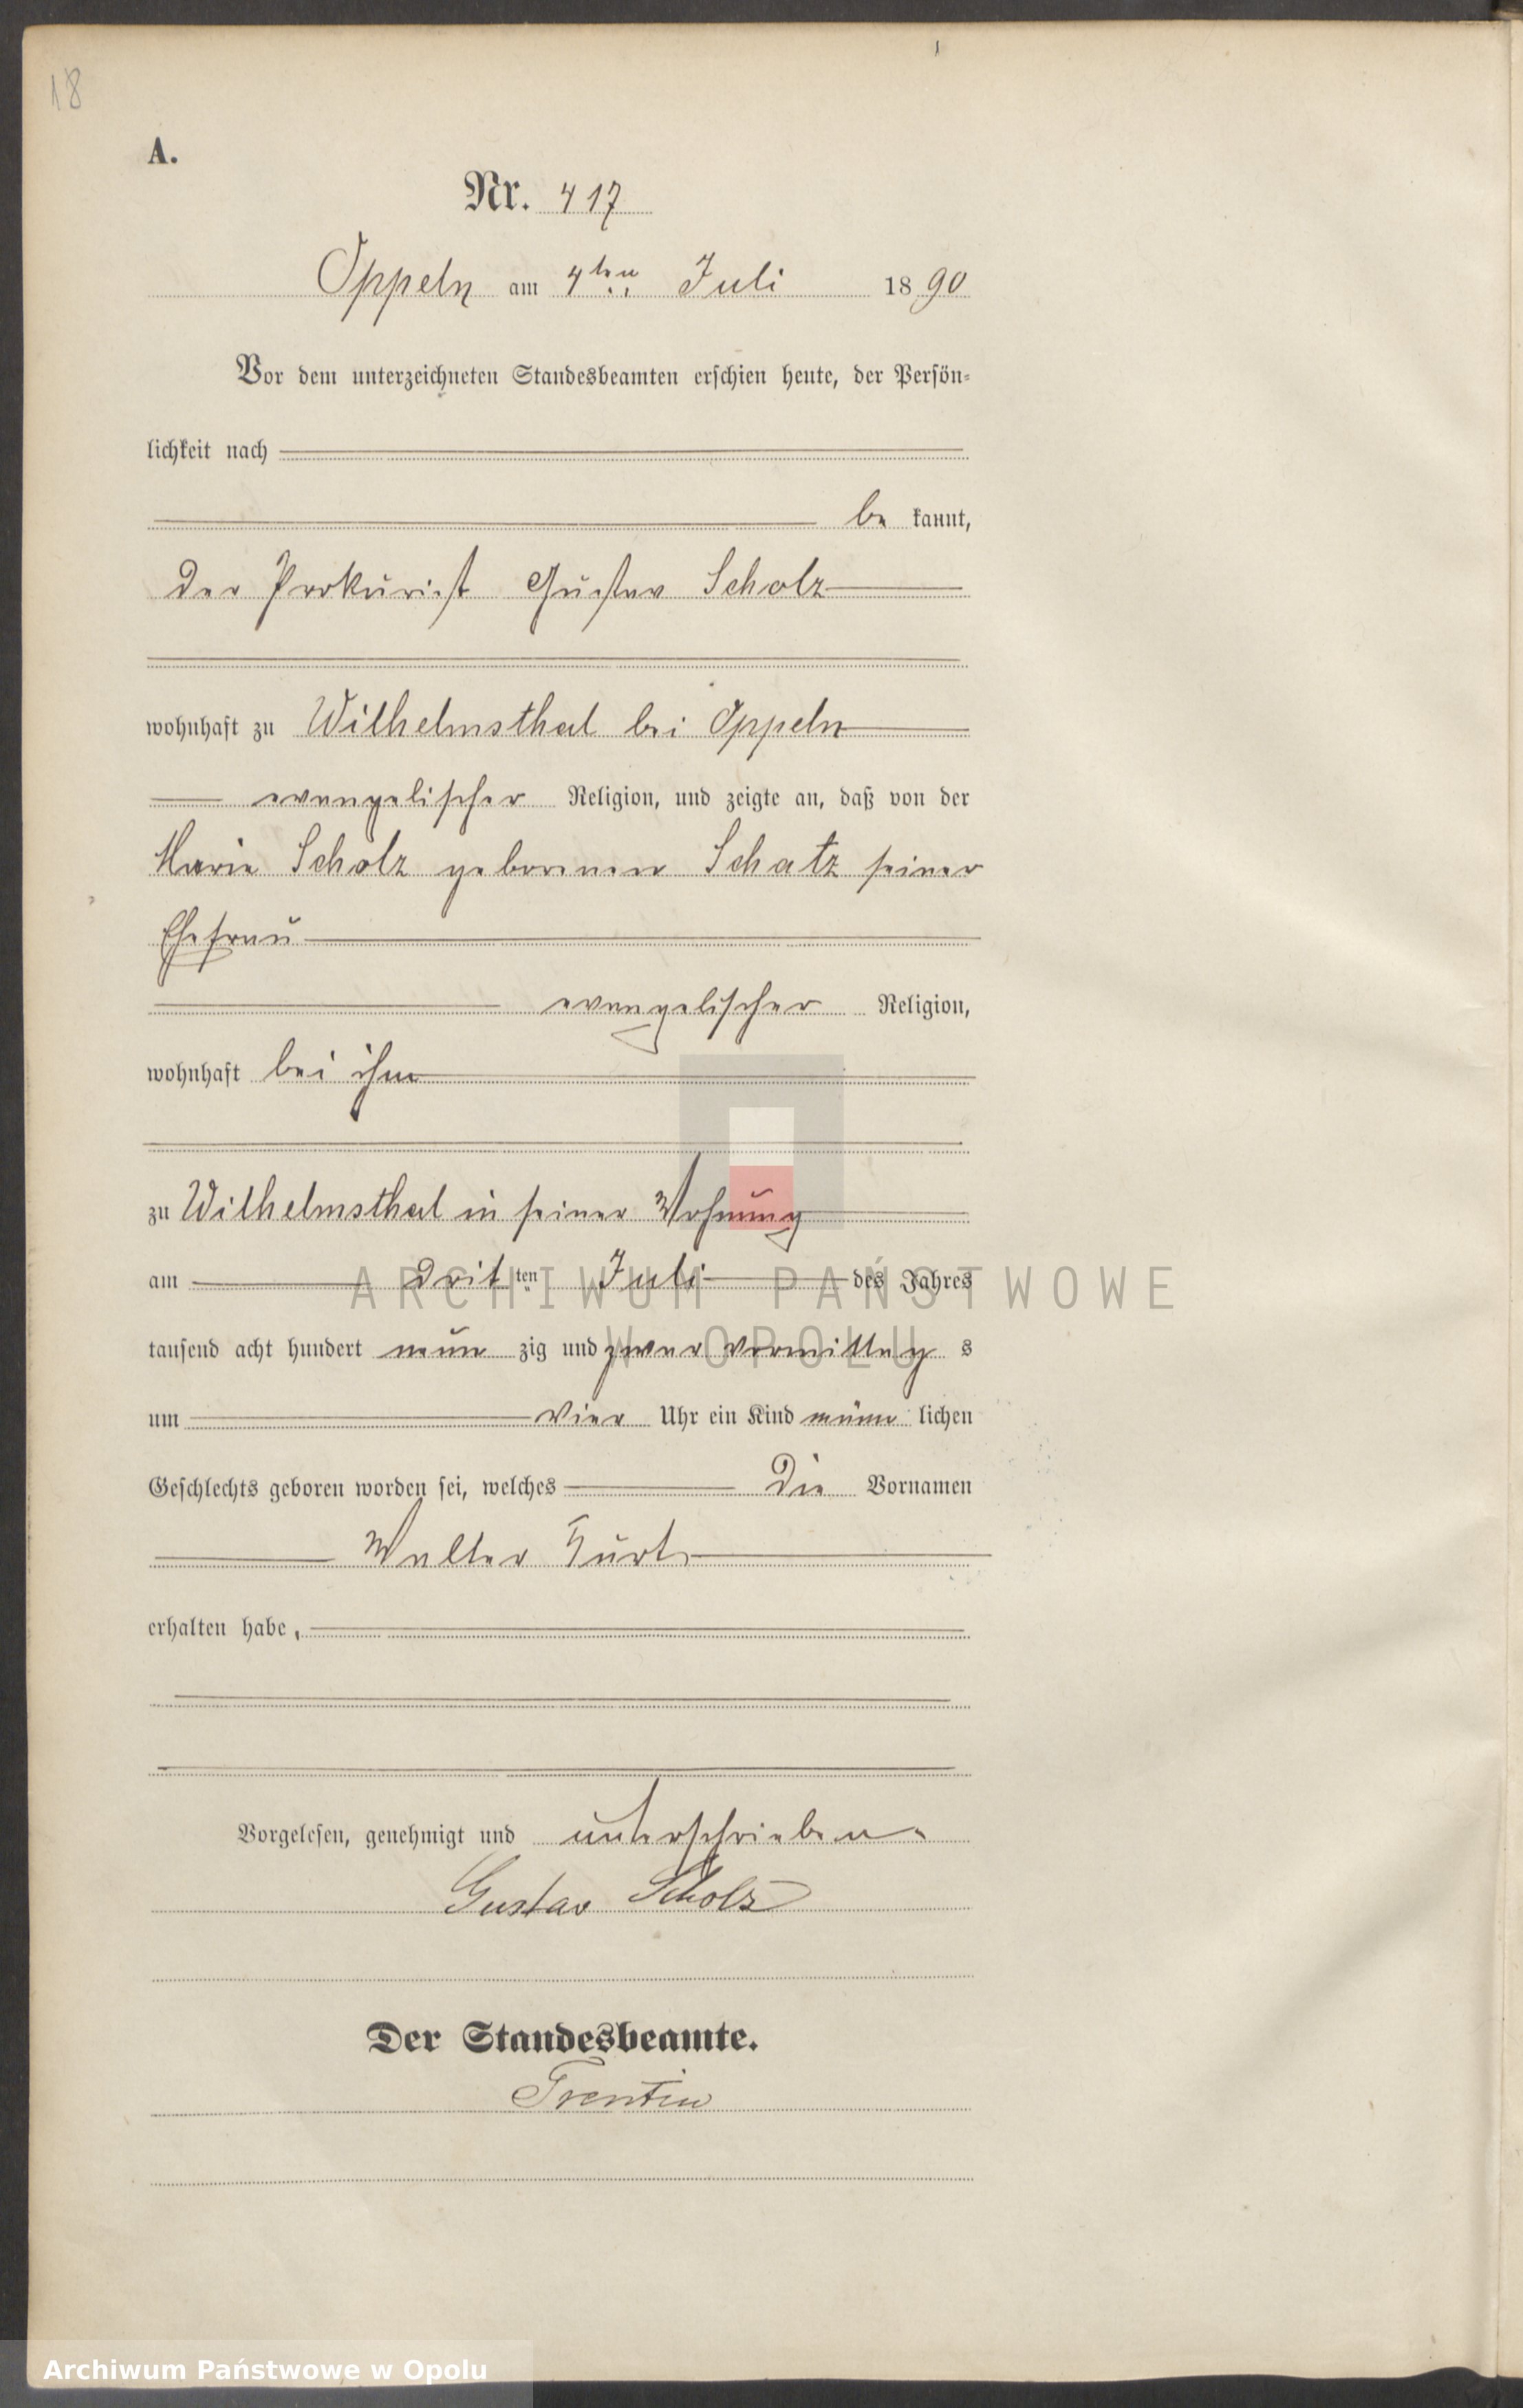 18
A.
Nr. 417
Oppeln am 4ten Juli 1890
Vor dem unterzeichneten Standesbeamten erschien heute, der Persön-
lichkeit nach
be kannt,
der Prokurist Gustav Scholz
wohnhaft zu Wilhelmsthal bei Oppeln
evangelischer Religion, und zeigte an, daß von der
Marie Scholz geborenen Schatz seiner
Ehefrau
evangelischer Religion,
wohnhaft bei ihm
zu Wilhelmsthal in seiner Wohnung
am drit ten Juli des Jahres
tausend acht hundert neun zig und zwar Vormittag s
um vier Uhr ein Kind männ lichen
Geschlechts geboren worden sei, welches die Vornamen
Walter Kurt
erhalten habe.
Vorgelesen, genehmigt und unterschrieben.
Gustav Scholz
Der Standesbeamte.
Trentin
ARCHIWUM PAŃSTWOWE
W OPOLU
Archiwum Państwowe w Opolu